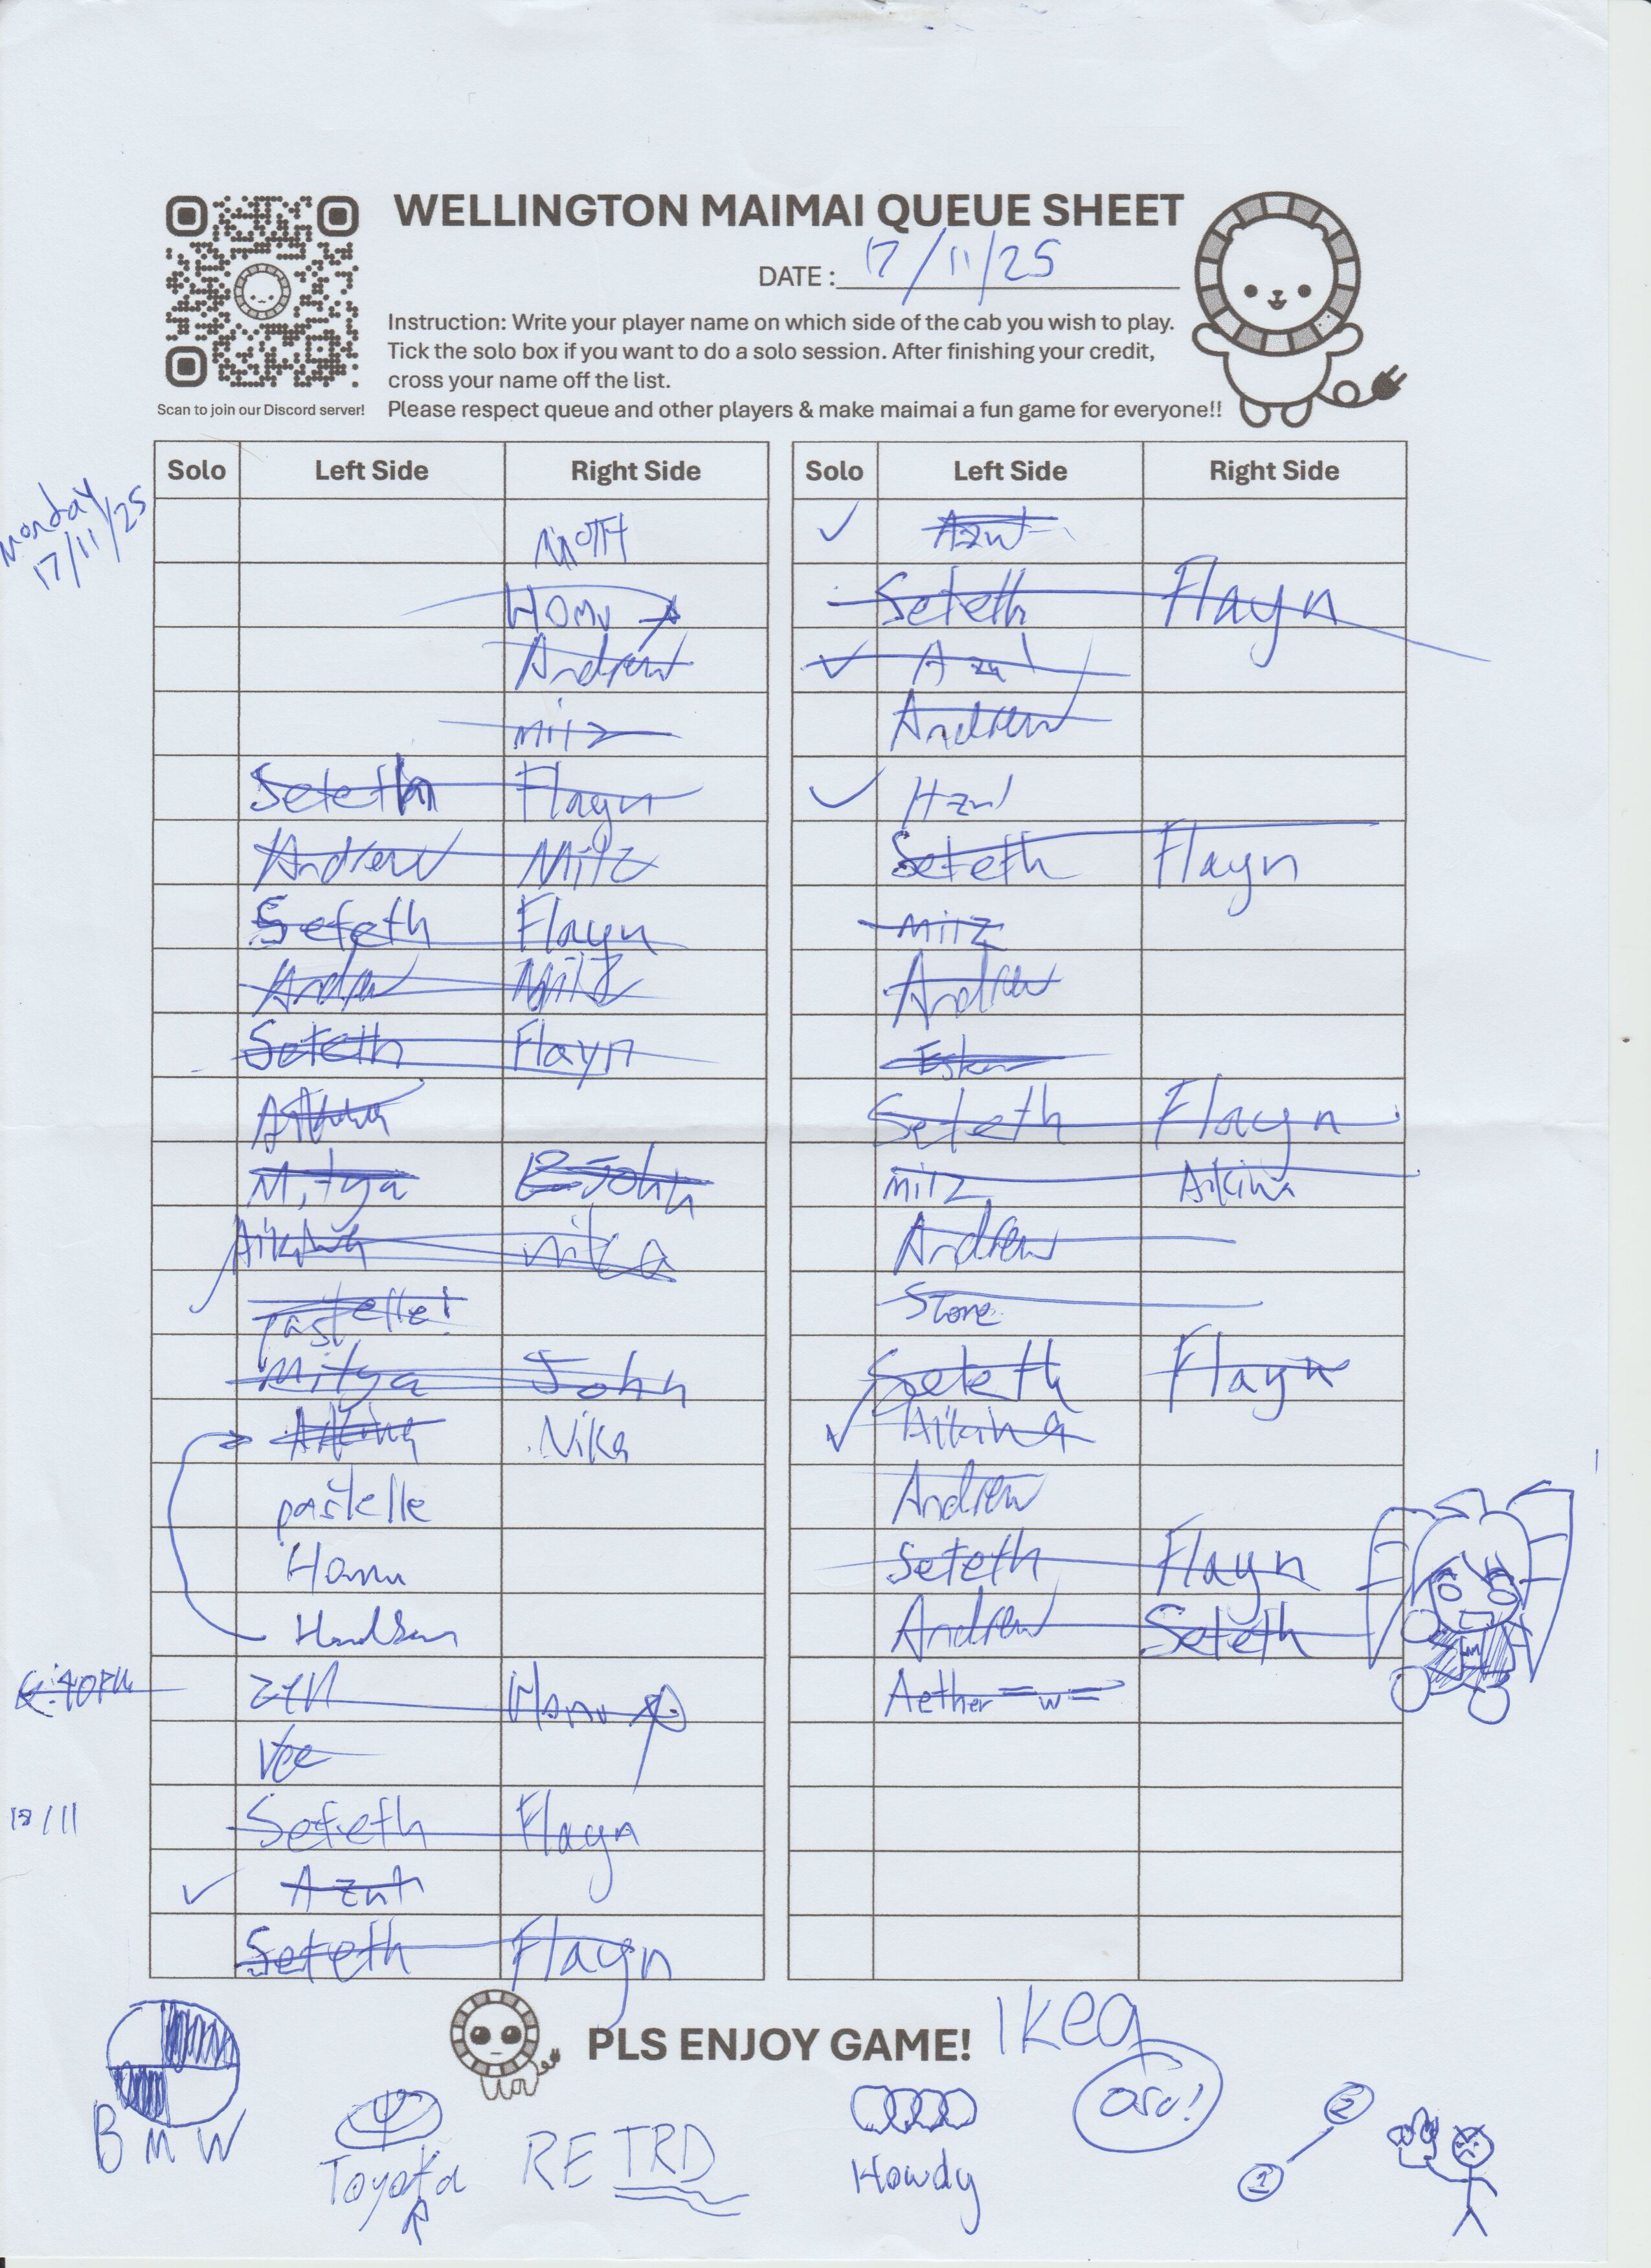 WELLINGTON MAIMAI QUEUE SHEET
DATE : 17/11/25
Instruction: Write your player name on which side of the cab you wish to play.
Tick the solo box if you want to do a solo session. After finishing your credit,
cross your name off the list.
Please respect queue and other players & make maimai a fun game for everyone!!
Scan to join our Discord server!
Monday
17/11/25
Solo Left Side Right Side
Andrew
mitz
Seteth Flayn
Andrew Mitz
Seteth Flayn
Mitz
Seteth Flayn
Mitya John
Aikina nika
Pastelle!
Mitya John
Aikina Nika
pastelle
Hanu
6:40PM
Vee
18/11
Seteth Flayn
✓ Azul
Seteth Flayn
Solo Left Side Right Side
✓ Azul
Seteth Flayn
✓ Azul
Andrew
✓ Azul
Seteth Flayn
mitz
Andrew
Seteth Flayn
mitz Aikina
Andrew
Stone
Seteth Flayn
✓ Aikina
Andrew
Seteth Flayn
Andrew Seteth
Aether =w=
PLS ENJOY GAME!
Ikea
BMW
Toyota
RETRD
Howdy
1
2